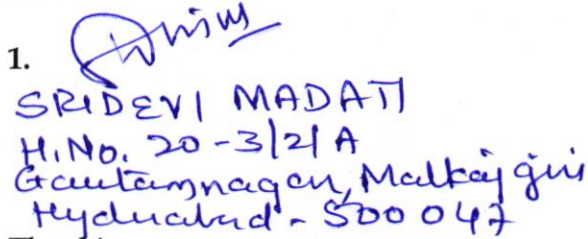 1.
SRIDEVI MADATI
H.No. 20-3/21 A
Gautamnagar, Malkajgiri
Hyderabad - 500 047